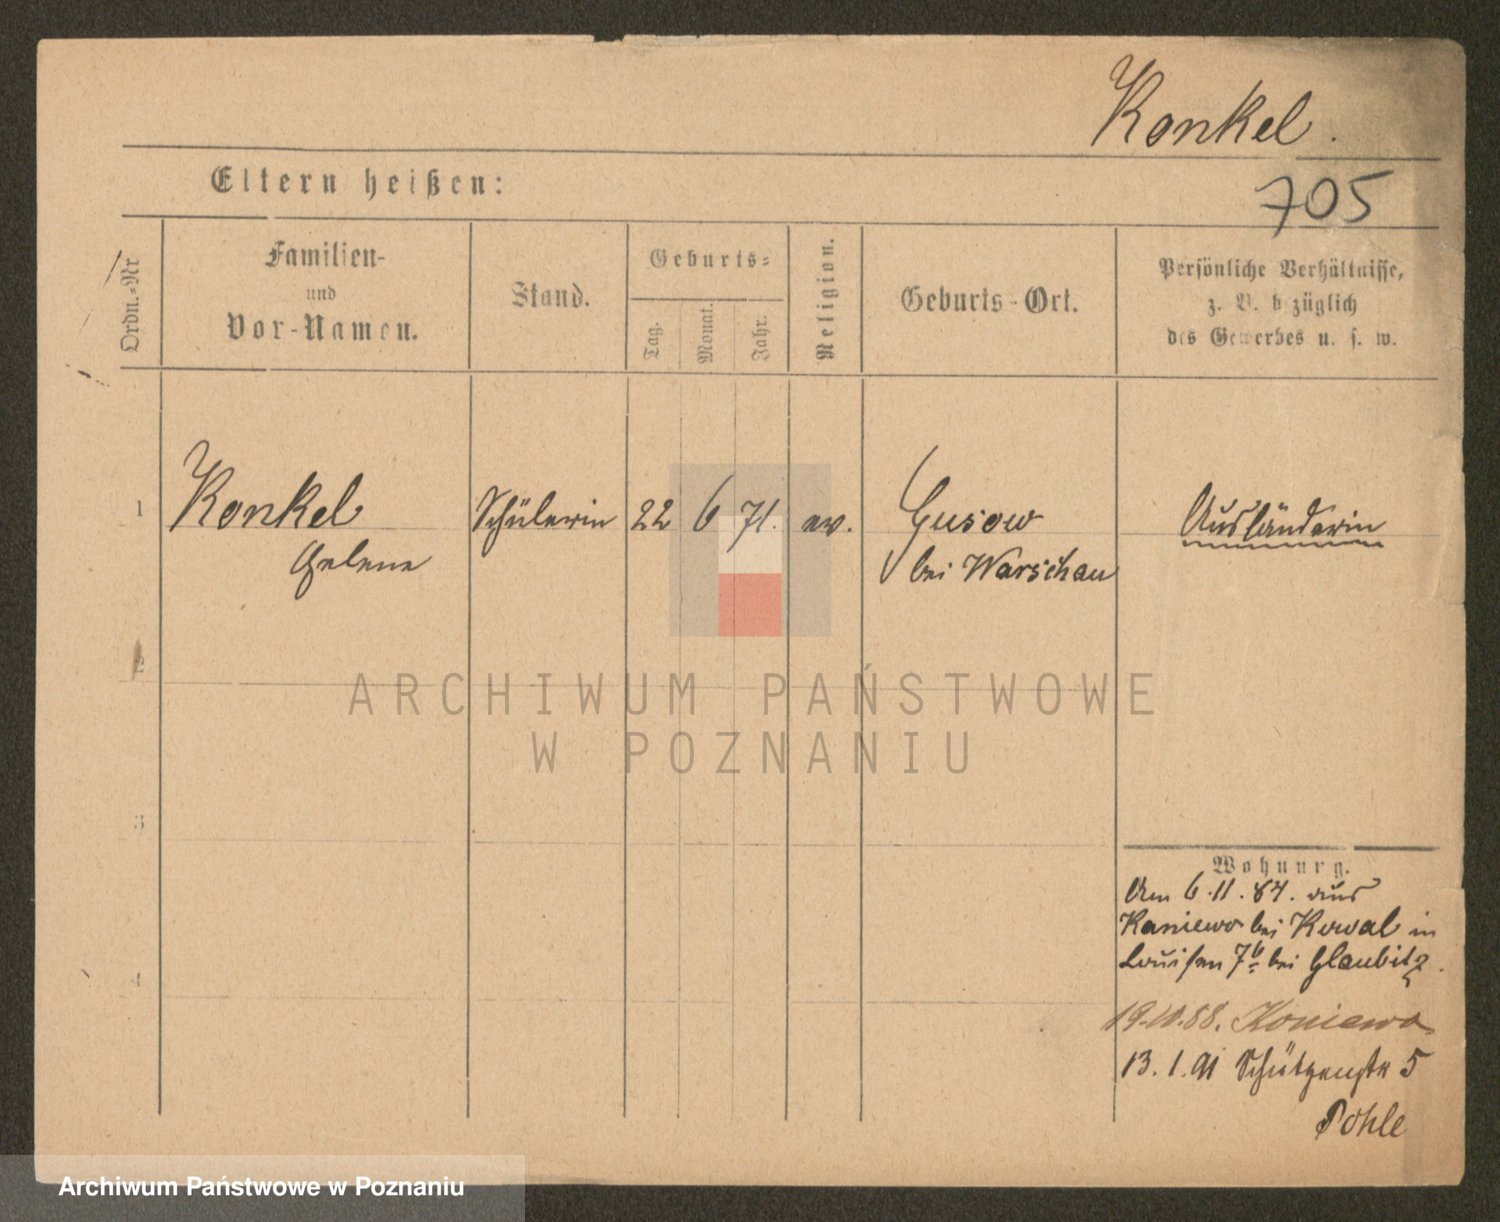 Konkel.
Eltern heißen:
705
Ordn.-Nr
Familien-
und
Vor-Namen.
Stand.
Geburts-
Tag.
Monat.
Jahr.
Religion.
Geburts-Ort.
Persönliche Verhältnisse,
z. B. bezüglich
des Gewerbes u. s. w.
1 Konkel Schülerin 22 6 71. ev. Gusow Ausländerin
Helene bei Warschau
2
3
4
Wohnung.
Am 6.11.87. aus
Kaniewo bei Kowal in
Louisen 7b bei Glaubitz.
19.10.88. Koniewo
13.1.91 Schützenstr 5
Pohle
ARCHIWUM PAŃSTWOWE
W POZNANIU
Archiwum Państwowe w Poznaniu